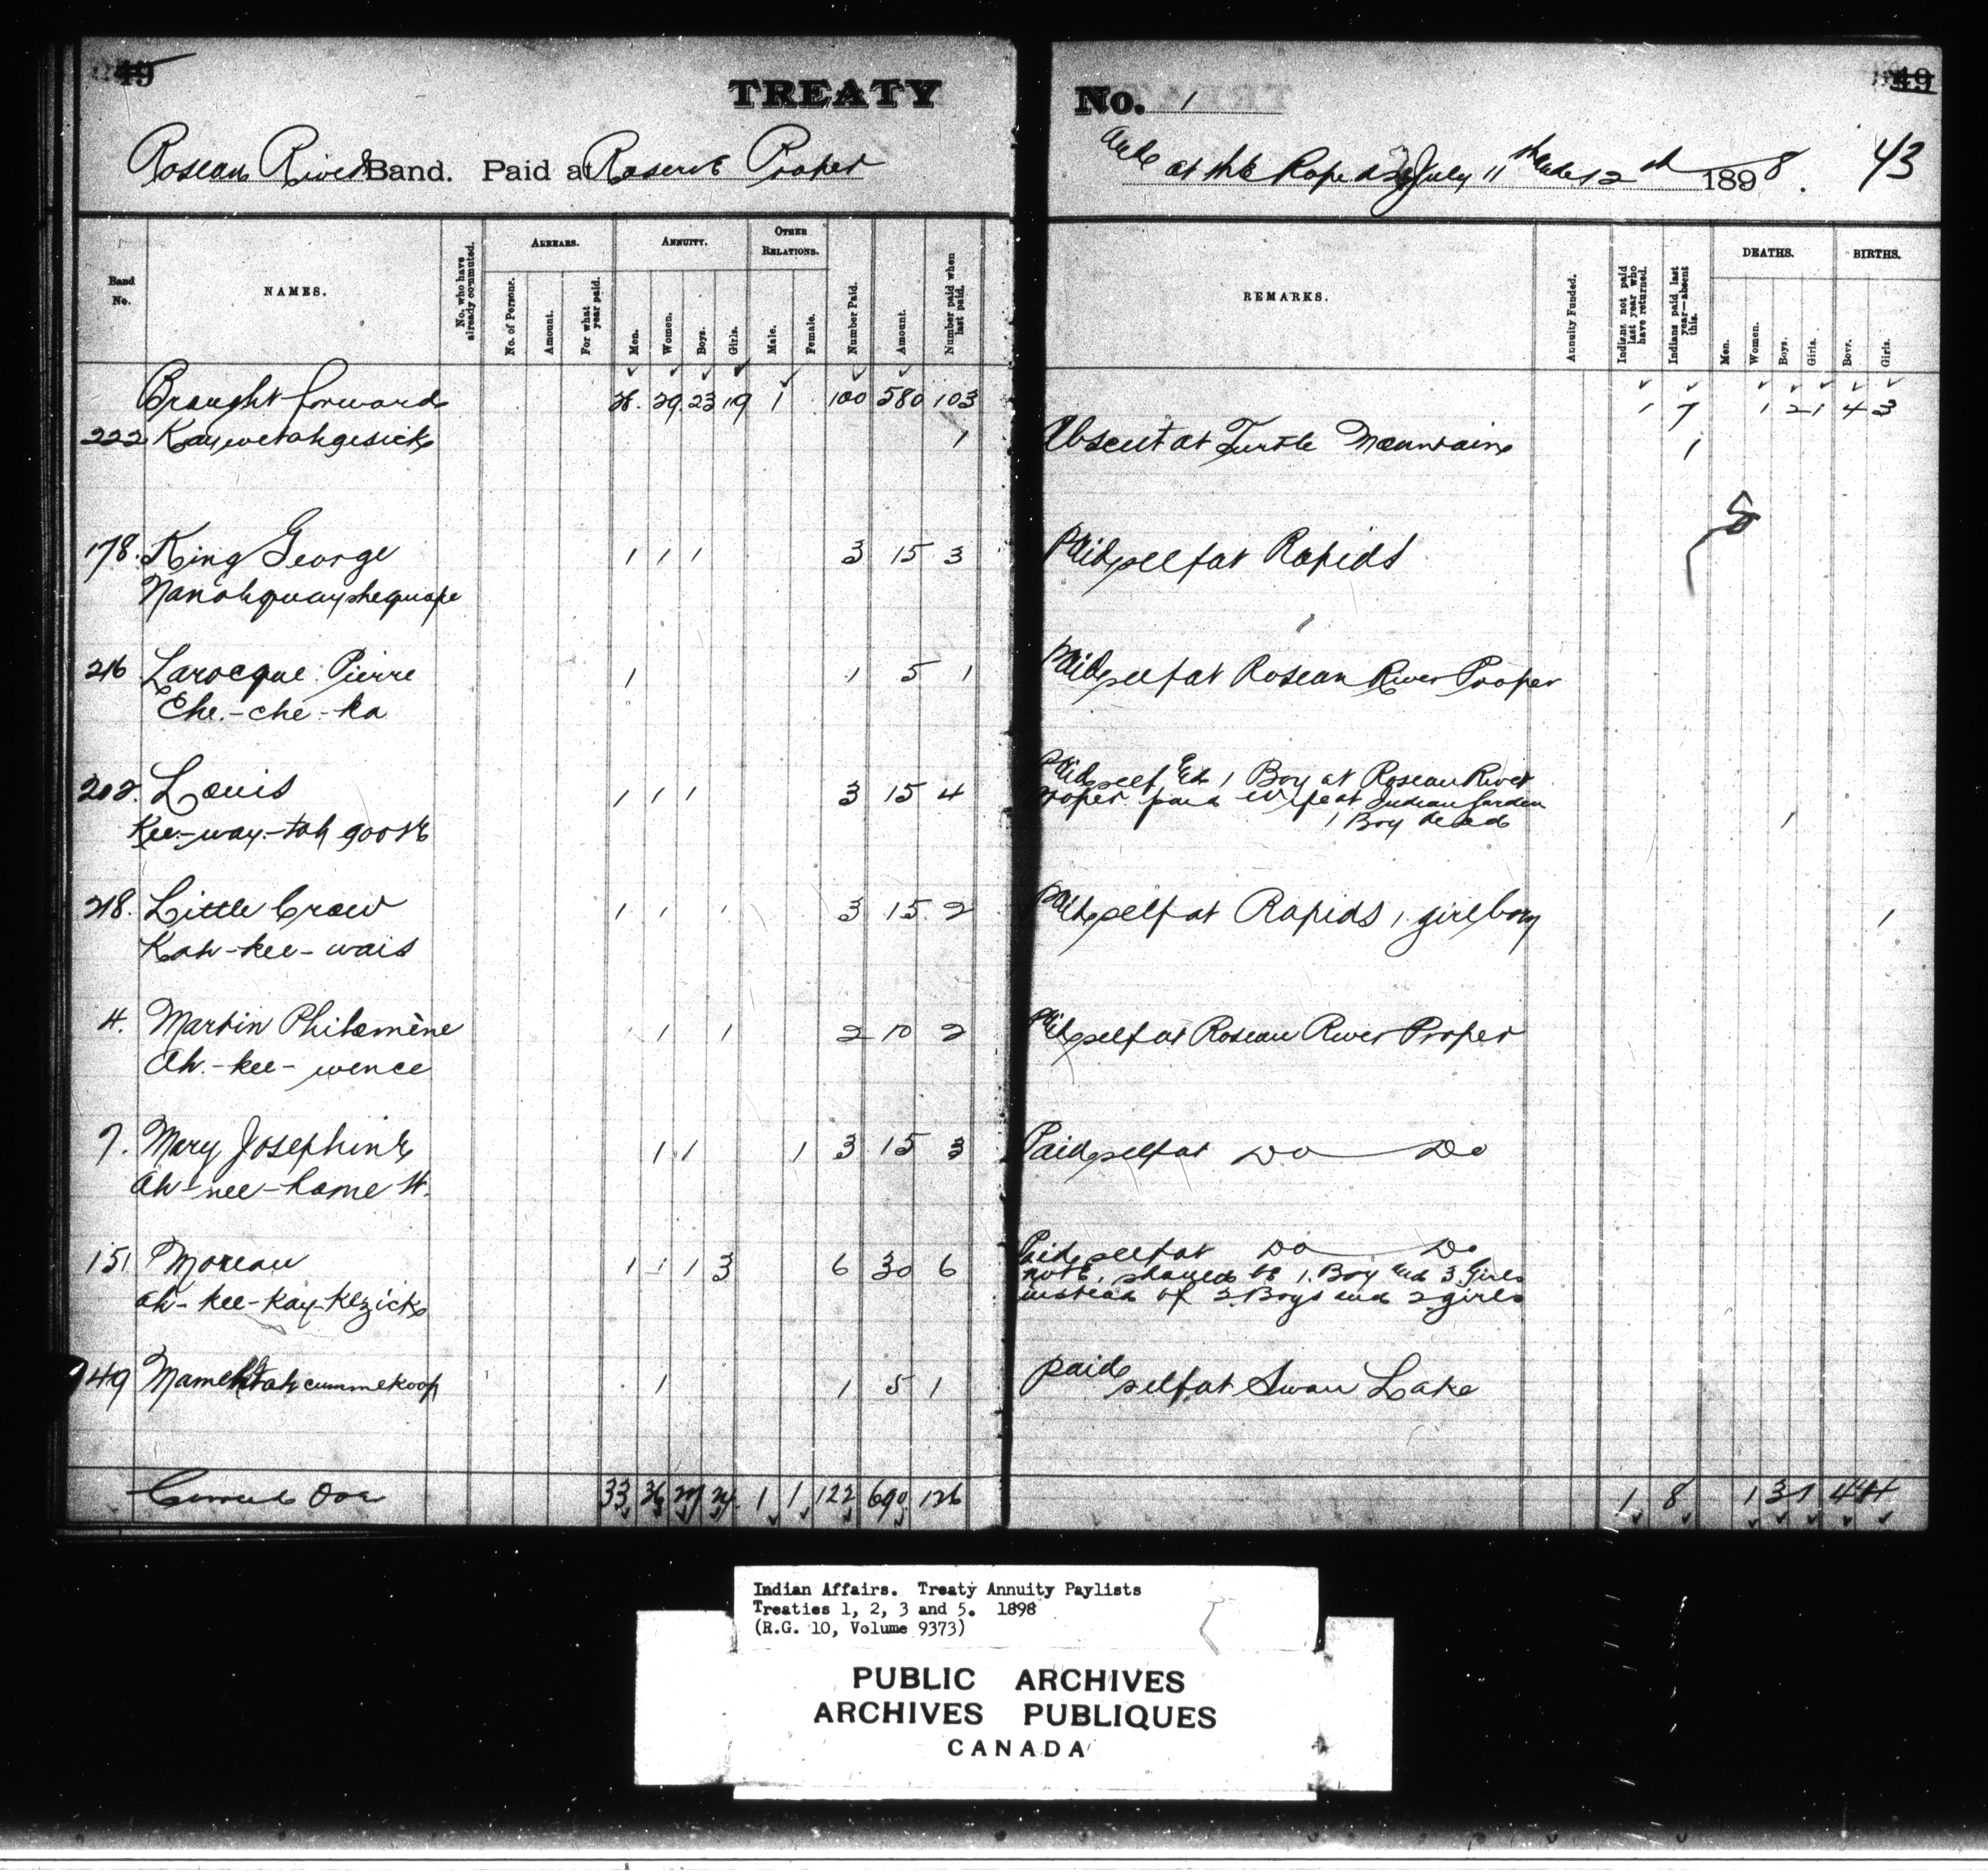 49
TREATY
No. 1
49
Roseau River Band. Paid at Reserve Proper
and at the Rapids July 11th and 12th 1898.
43
Band No.
NAMES.
No. who have already commuted.
ARREARS.
No. of Persons.
Amount.
For what year paid.
ANNUITY.
Men.
Women.
Boys.
Girls.
OTHER RELATIONS.
Male.
Female.
Number Paid.
Amount.
Number paid when last paid.
REMARKS.
Annuity Funded.
Indians not paid last year who have returned.
Indians paid last year—absent this.
DEATHS.
Men.
Women.
Boys.
Girls.
BIRTHS.
Boys.
Girls.
Brought forward 28 29 23 19 1 100 580 103 1 7 1 2 1 4 3
222 Kaywetahgesick 1 Absent at Turtle Mountain 1
178. King George 1 1 1 3 15 3 Paid self at Rapids
Nanahquayshequape
216 Larocque Pierre 1 1 5 1 Paid self at Roseau River Proper
Che-che-ka
202. Louis 1 1 1 3 15 4 Paid self and 1 Boy at Roseau River
Proper paid wife at Indian Garden
1 Boy dead 1
Kee-way-tah goose
218. Little Crow 1 1 1 3 15 2 Paid self at Rapids 1 girl born 1
Kah-kee-wais
4. Martin Philomène 1 1 2 10 2 Paid self at Roseau River Proper
Ah-kee-wence
7. Mary Josephine 1 1 1 3 15 3 Paid self at Do Do
Ah-nee-
151 Moreau 1 1 1 3 6 30 6 Paid self at Do Do
note. should be 1 Boy and 3 Girls
instead of 2 Boys and 2 girls
Ah-kee-kay-kezick
149 1 1 5 1 paid self at Swan Lake
Carried Over 33 36 27 24 1 1 122 690 126 1 8 1 3 1 4 4
Indian Affairs. Treaty Annuity Paylists
Treaties 1, 2, 3 and 5. 1898
(R.G. 10, Volume 9373)
PUBLIC ARCHIVES
ARCHIVES PUBLIQUES
CANADA